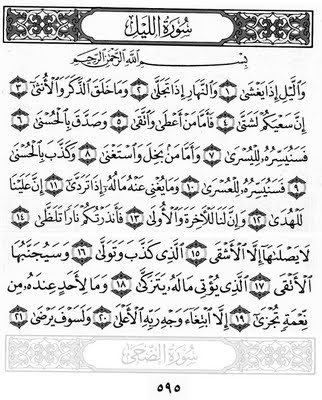 سُورَةُ اللَّيْلِ
بِسْمِ اللَّهِ الرَّحْمَٰنِ الرَّحِيمِ
وَاللَّيْلِ إِذَا يَغْشَىٰ ١ وَالنَّهَارِ إِذَا تَجَلَّىٰ ٢ وَمَا خَلَقَ الذَّكَرَ وَالْأُنثَىٰ ٣
إِنَّ سَعْيَكُمْ لَشَتَّىٰ ٤ فَأَمَّا مَنْ أَعْطَىٰ وَاتَّقَىٰ ٥ وَصَدَّقَ بِالْحُسْنَىٰ ٦
فَسَنُيَسِّرُهُ لِلْيُسْرَىٰ ٧ وَأَمَّا مَن بَخِلَ وَاسْتَغْنَىٰ ٨ وَكَذَّبَ بِالْحُسْنَىٰ
٩ فَسَنُيَسِّرُهُ لِلْعُسْرَىٰ ١٠ وَمَا يُغْنِي عَنْهُ مَالُهُ إِذَا تَرَدَّىٰ ١١ إِنَّ عَلَيْنَا
لَلْهُدَىٰ ١٢ وَإِنَّ لَنَا لَلْآخِرَةَ وَالْأُولَىٰ ١٣ فَأَنذَرْتُكُمْ نَارًا تَلَظَّىٰ ١٤
لَا يَصْلَاهَا إِلَّا الْأَشْقَى ١٥ الَّذِي كَذَّبَ وَتَوَلَّىٰ ١٦ وَسَيُجَنَّبُهَا
الْأَتْقَى ١٧ الَّذِي يُؤْتِي مَالَهُ يَتَزَكَّىٰ ١٨ وَمَا لِأَحَدٍ عِندَهُ مِن
نِّعْمَةٍ تُجْزَىٰ ١٩ إِلَّا ابْتِغَاءَ وَجْهِ رَبِّهِ الْأَعْلَىٰ ٢٠ وَلَسَوْفَ يَرْضَىٰ ٢١
سُورَةُ الضُّحَىٰ
٥٩٥